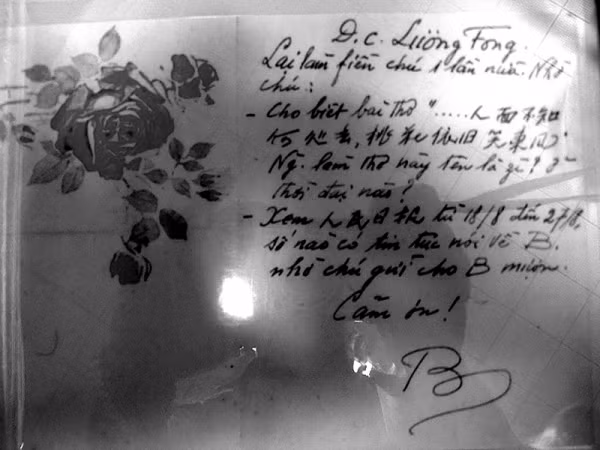 Đ.c. Lương Fong.
Lại làm fiền chú 1 lần nữa. Nhờ
chú:
- Cho biết bài thơ "..... 人面不知
何処去, 桃花依旧笑東风"
Ng. làm thơ này tên là gì? ở
thời đại nào?
- Xem 人民日报 từ 18/8 đến 27/8,
số nào có tin tức nói về B.
nhờ chú gửi cho B mượn.
Cảm ơn!
B